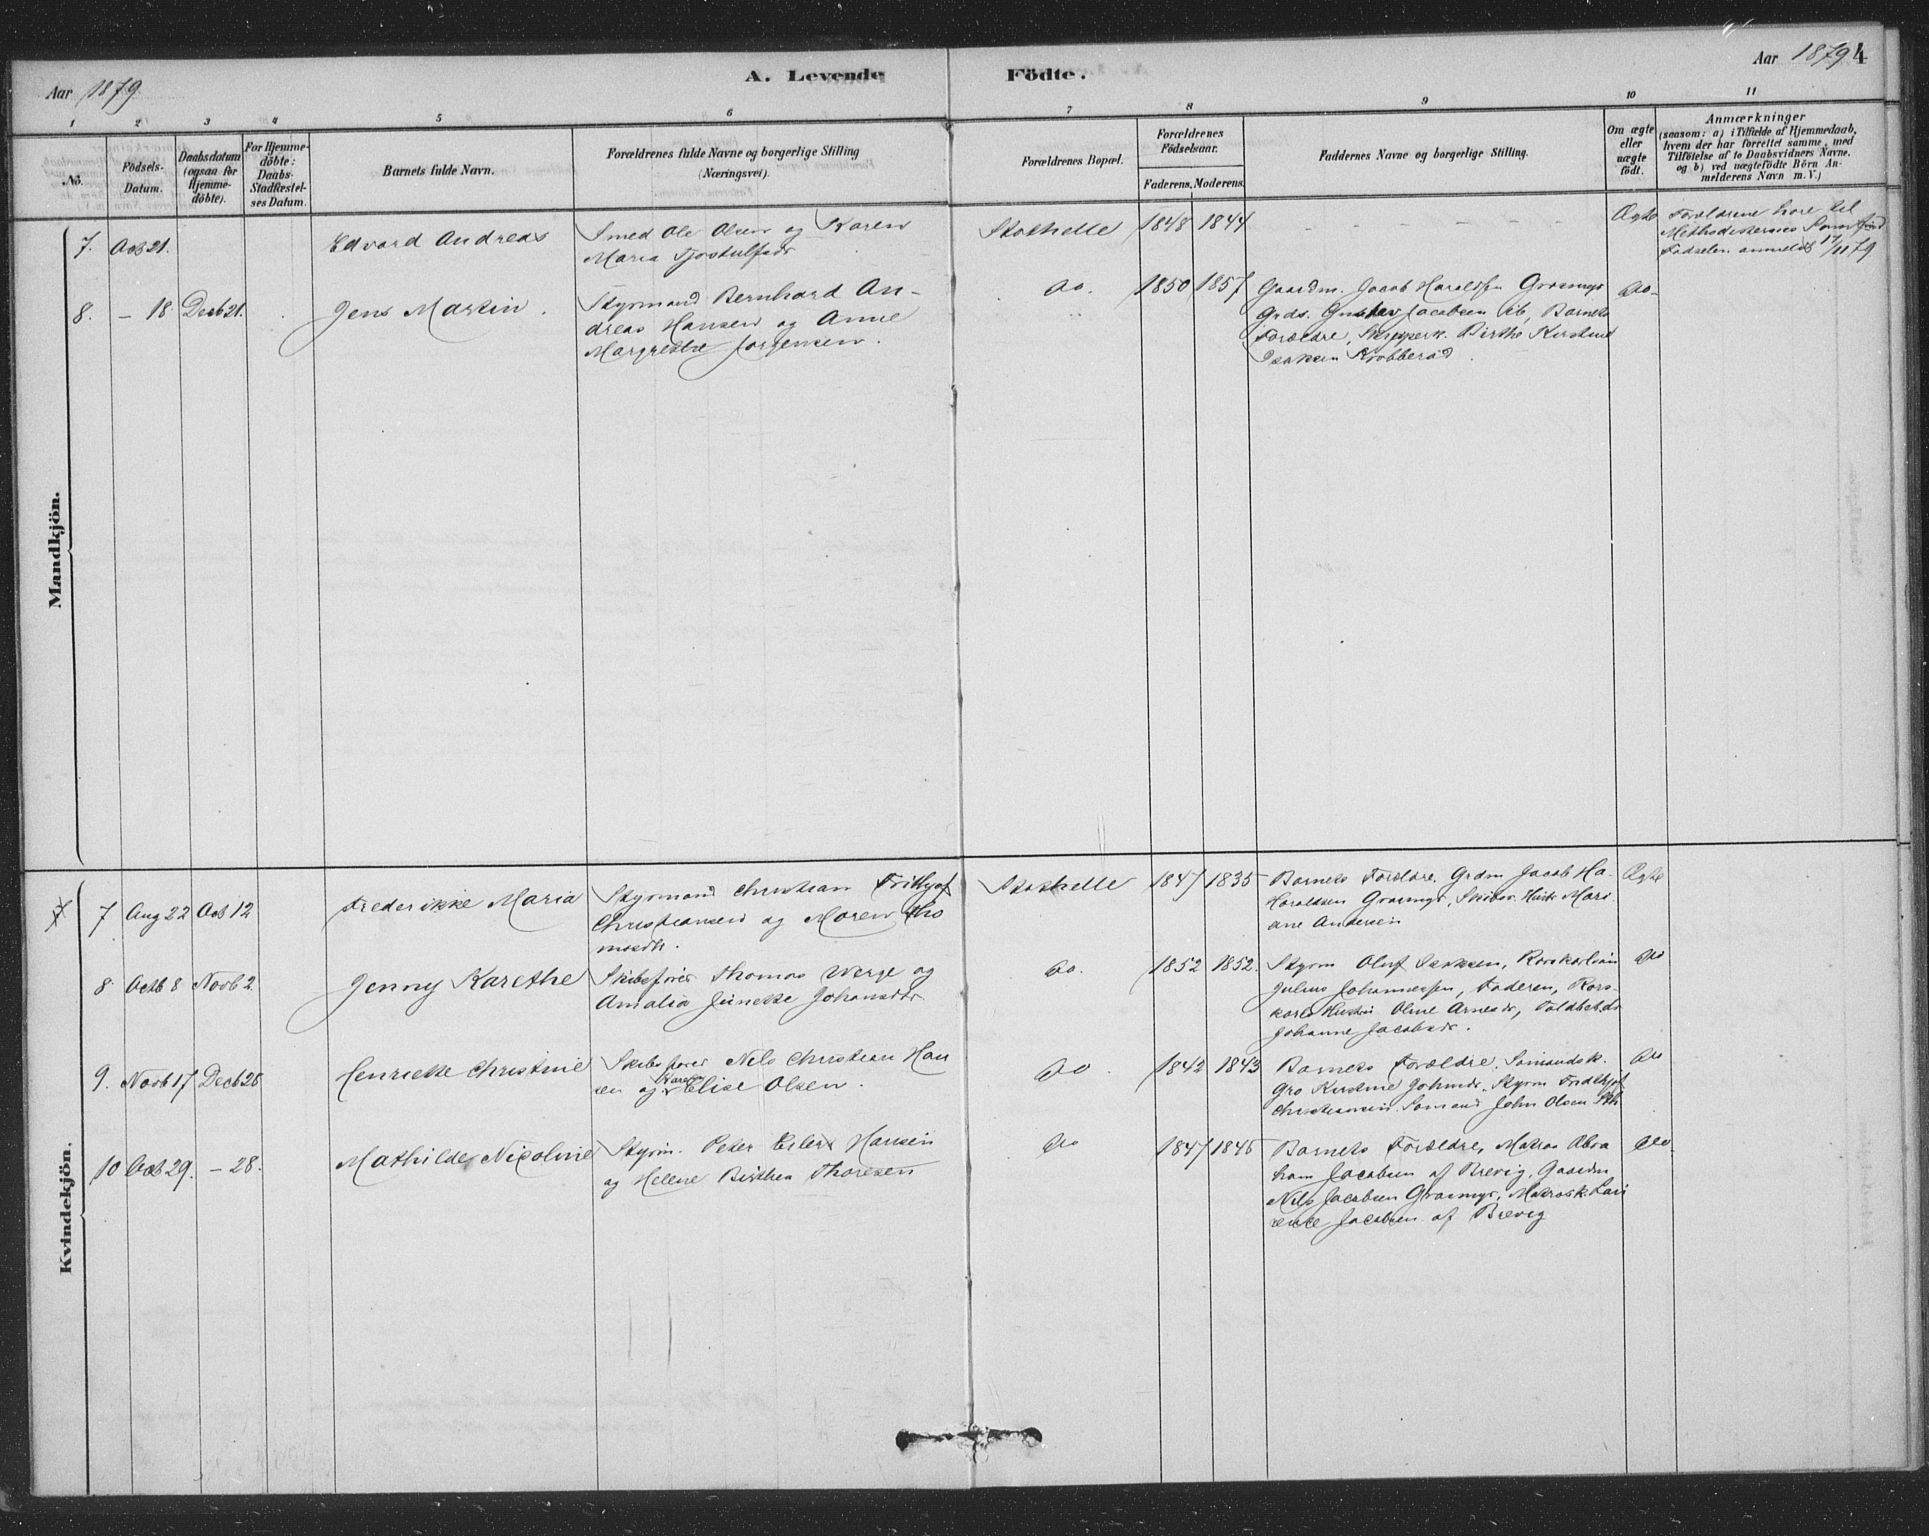 Aar 1879
A. Levende
Födte.
Aar 1879 4
1 2 3 4 5 6 7 8 9 10 11
No.
Födsels-
Datum.
Daabsdatum
(ogsaa for
Hjemme-
döbte).
For Hjemme-
döbte:
Daabs-
Stadfæstel-
ses Datum.
Barnets fulde Navn.
Forældrenes fulde Navne og borgerlige Stilling
(Næringsvei).
Forældrenes Bopæl.
Forældrenes
Födselsaar.
Faderens.
Moderens.
Faddernes Navne og borgerlige Stilling.
Om ægte
eller
uægte
födt.
Anmærkninger
(saasom: a) i Tilfælde af Hjemmedaab,
hvem der har forrettet samme, med
Tilföielse af to Daabsvidners Navne.
og b) ved uægtefödte Börn An-
melderens Navn m. V.)
Mandkjön.
7. Octb 21.
Edvard Andreas
Smed Ole Olsen og Karen
Maria Tjostulfsdr
Stathelle
1848 1844
- - - - -
Ægte
Forældrene høre til
Methodisternes
Fødselen anmeldt 17/11 79
8. - 18 Decb 21.
Jens Martin.
Styrmand Bernhard An-
dreas Hansen og Anne
Margrethe Jørgensen.
do.
1850 1857
Gaardm. Jacob Haraldsen Grasmyr
Grds. Gustav Jacobsen ib, Barnets
Forældre, Skipperk. Birthe Kirstine
Isaksen Krabberød.
do-
Kvindekjön.
7 Aug 22 Octb 12
Frederikke Maria
Styrmand Christian Frithjof
Christiansen og Maren Tho
masdtr.
Stathelle
1847 1835
Barnets Forældre, Grdm Jacob Ha-
Haraldsen Grasmyr, Hustr Mari-
ane Andersen
Ægte
8 Octb 8 Novb 2.
Jenny Karethe
Skibsfører Thomas Werge og
Amalia Jinette Johansdtr.
do.
1852 1852.
Styrm Oluf Isaksen,
Julius Johannessen, Faderen, Kors-
karls Hustru Oline Arnesdr,
Johanne Jacobsdr.
do
9. Novb 17 Decb 26
Henriette Christine
Skibsfører Nils Christian Han
sen og Karen Elise Olsen.
do.
1842 1843
Barnets Forældre, Sømandsk.
Gro Kirstine Johnsdr. Styrm Fridthjof
Christiansen. Sømand John Olsen Sth
do
10 Octb 29. - 28.
Mathilde Nicoline
Styrm. Peter Eilert Hansen
og Helene Birthea Thoresen
do
1847 1845
Barnets Forældre, Matros Abra
ham Jacobsen af Brevig, Gaardm
Nils Jacobsen Grasmyr, Matrosk. Lau
rense Jacobsen af Brevig
do.